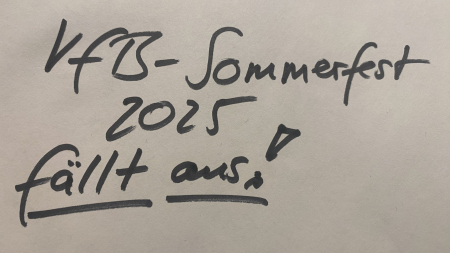 VfB-Sommerfest
2025
fällt aus!